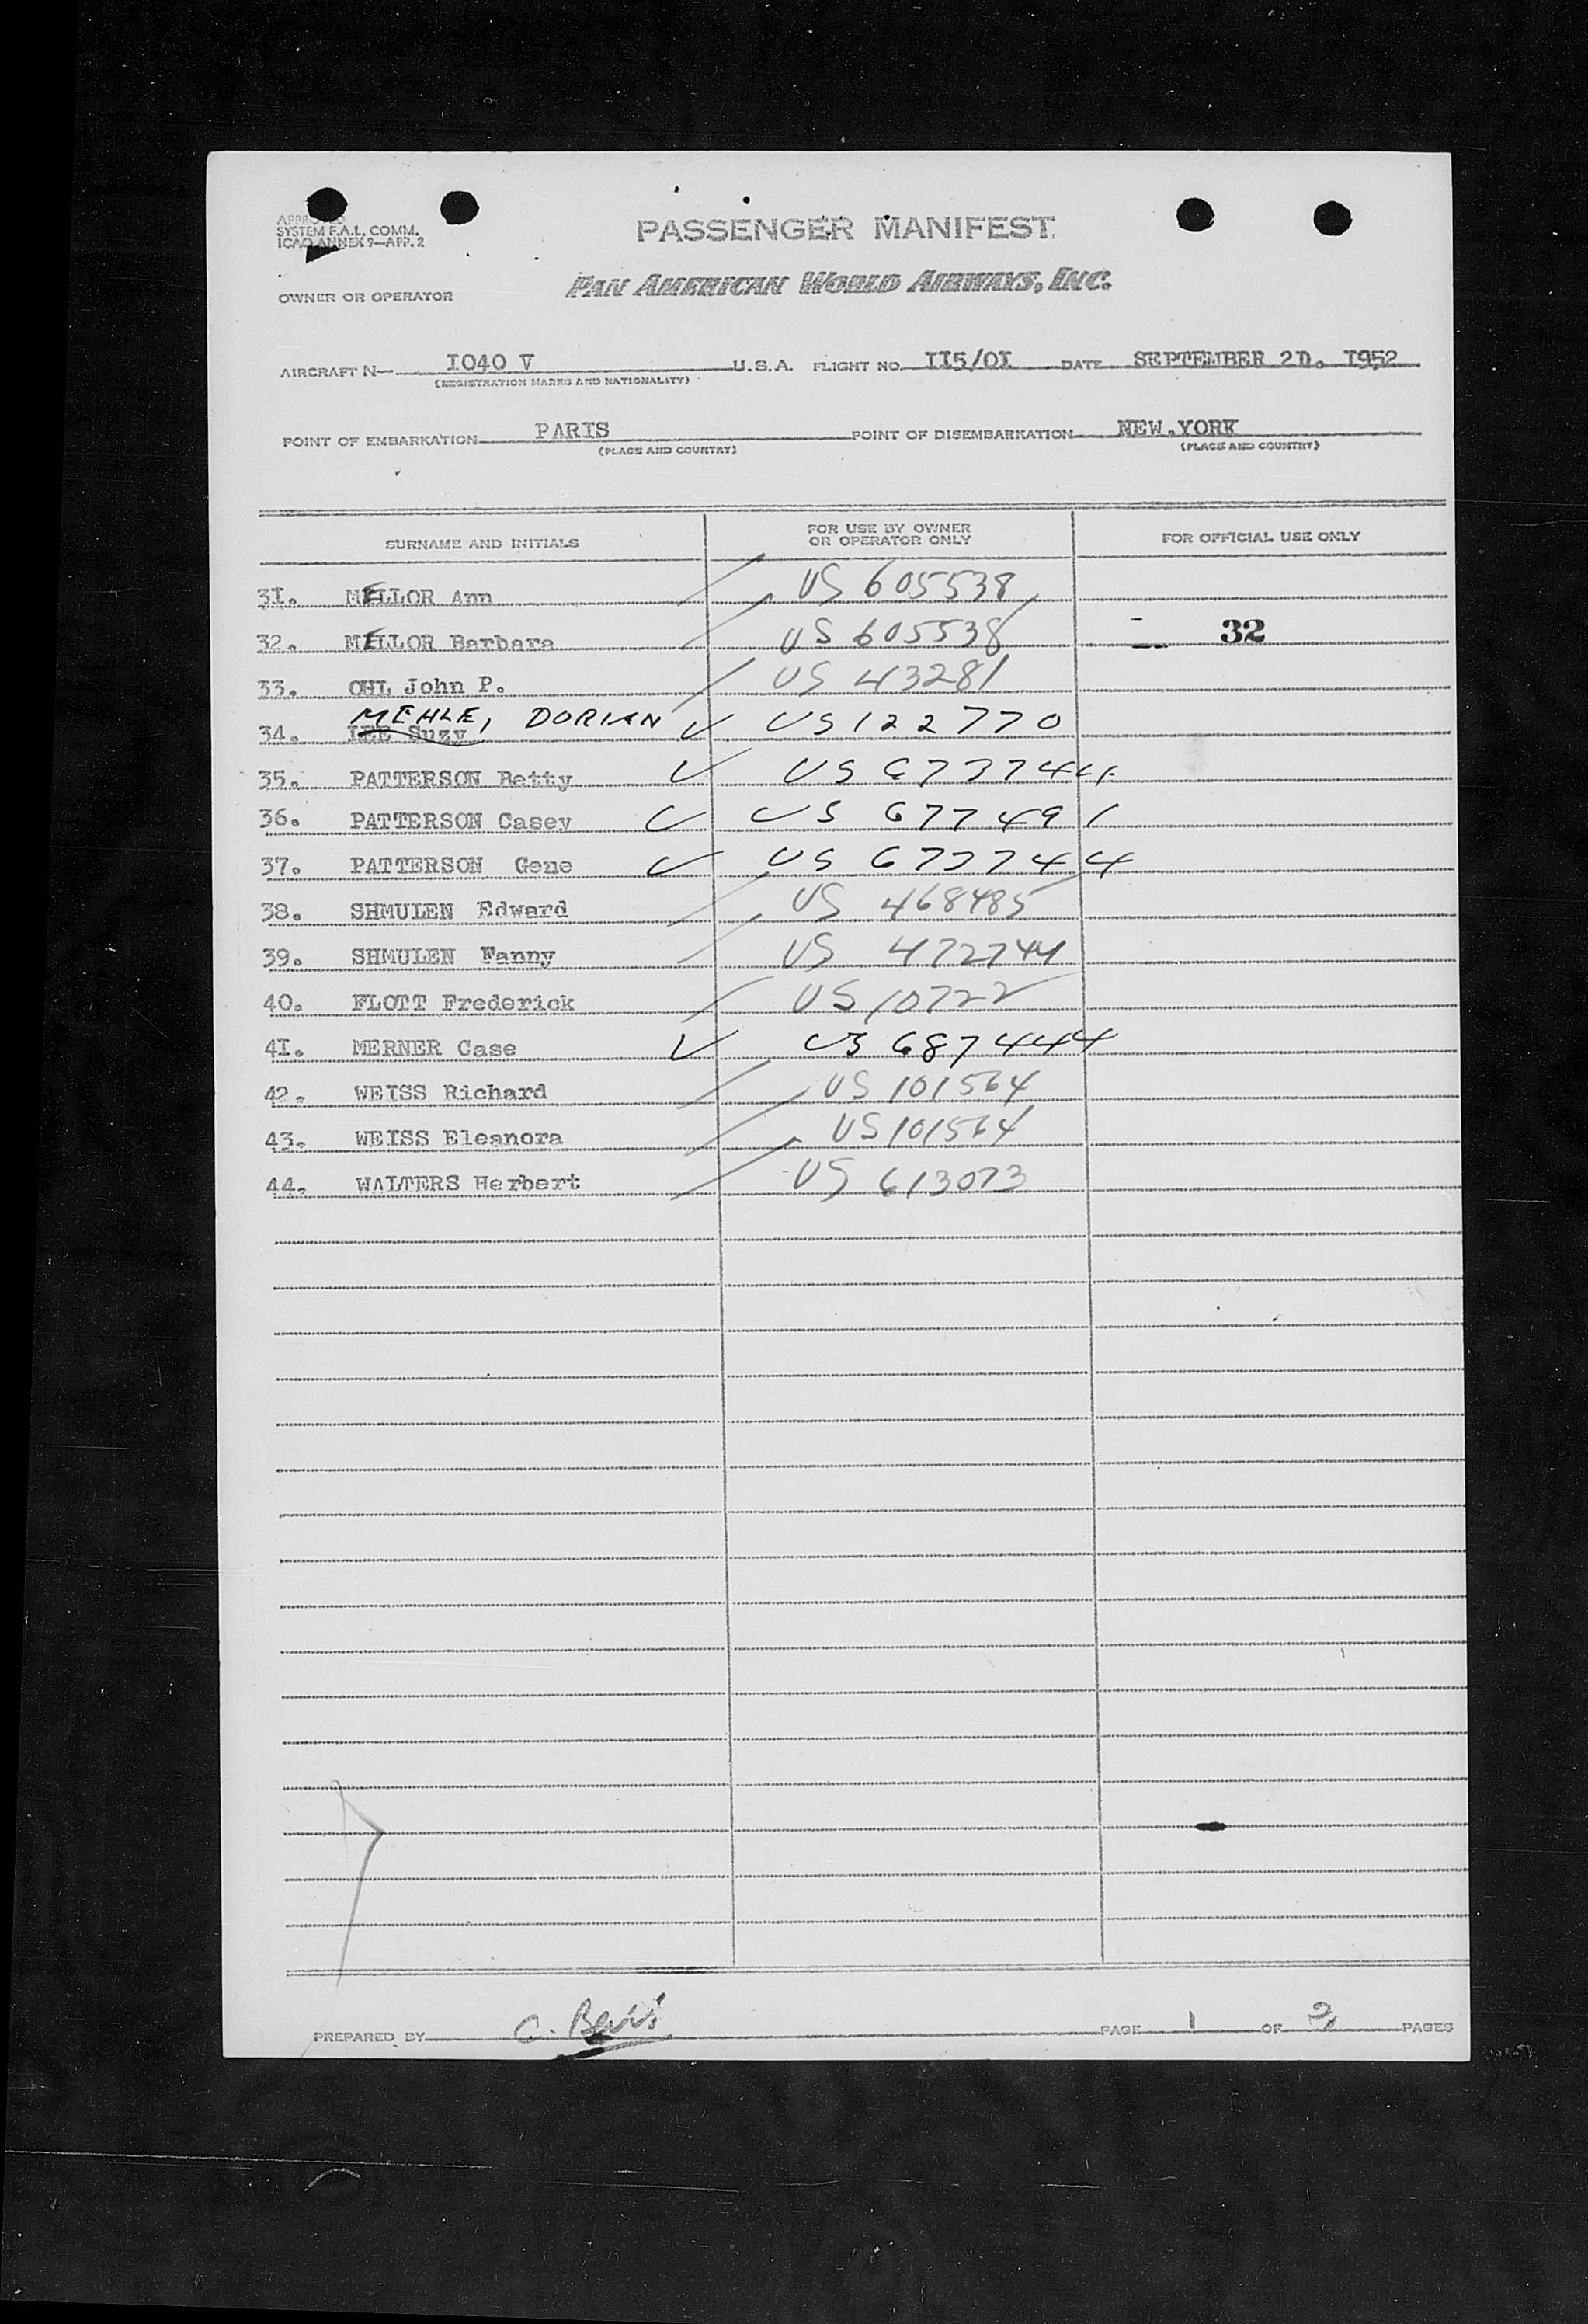 APPROVED
SYSTEM F.A.L. COMM.
ICAO ANNEX 9—APP. 2
PASSENGER MANIFEST
OWNER OR OPERATOR PAN AMERICAN WORLD AIRWAYS, INC.
AIRCRAFT N— I040 V U.S.A. FLIGHT NO. II5/OI DATE SEPTEMBER 2D. I952
(REGISTRATION MARKS AND NATIONALITY)
POINT OF EMBARKATION PARIS POINT OF DISEMBARKATION NEW.YORK
(PLACE AND COUNTRY) (PLACE AND COUNTRY)
SURNAME AND INITIALS FOR USE BY OWNER OR OPERATOR ONLY FOR OFFICIAL USE ONLY
3I. MELLOR Ann US 605538
32. MELLOR Barbara US 605538 32
33. OHL John P. US 43281
MEHLE, DORIAN
34. LEE Suzy US 122770
35. PATTERSON Betty US 673744
36. PATTERSON Casey US 677491
37. PATTERSON Gene US 677744
38. SHMULEN Edward US 468485
39. SHMULEN Fanny US 472744
40. FLOTT Frederick US 10722
4I. MERNER Case US 687444
42. WEISS Richard US 101564
43. WEISS Eleanora US 101564
44. WALTERS Herbert US 613073
PREPARED BY C. PAGE 1 OF 2 PAGES